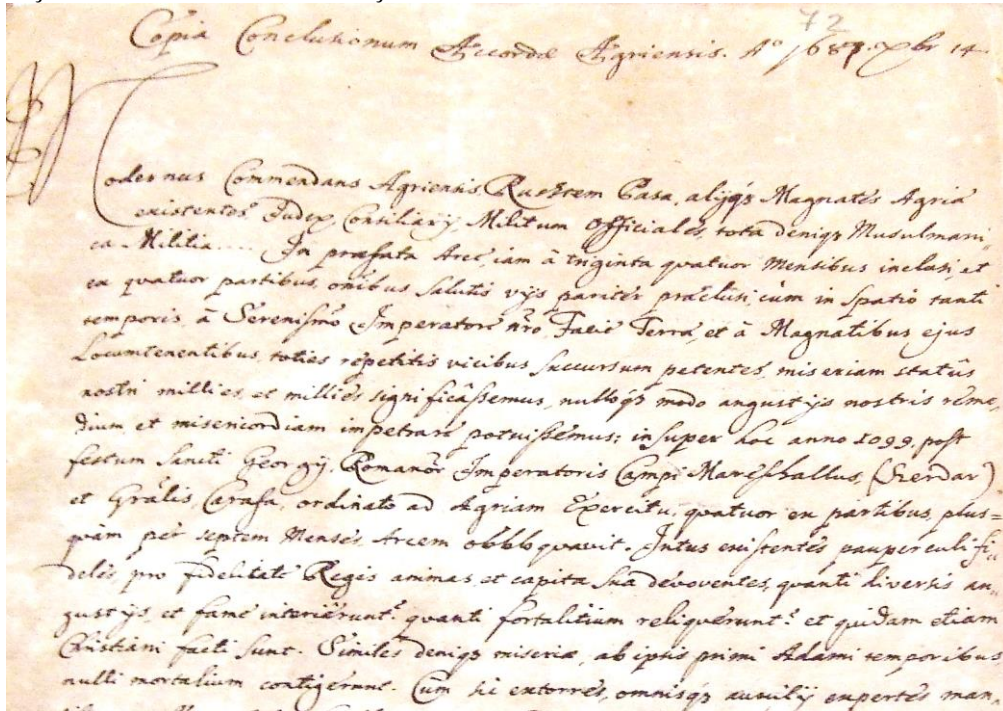 72
Copia Conclusionum Accordæ Agriensis. Aº 1687. Xbr 14
Modernus Commendans Agriensis Rusztem Basa, alijqz Magnates Agriæ
existentes Judex Consiliarij, Militum Officiales, tota deniqz Musulmani-
ca Militia..... In præfata Arce, iam à triginta quatuor Mensibus inclusi, et
ex quatuor partibus, oñibus salutis vijs pariter præclusi, cùm in spatio tanti
temporis, à Serenissimo Imperatore nro, Facie Terræ, et à Magnatibus ejus
Locumtenentibus, toties repetitis vicibus succursum petentes, miseriam statûs
nostri millies, et millies significâssemus, nulloqz modo angustijs nostris reme,
dium, et misericordiam impetrare potuissemus; insuper hoc anno 1099, post
festum Sancti Georgij, Romanor Imperatoris Campi Mareshallus, (Szerdar)
et Grâlis, Carafa, ordinato ad Agriam Exercitu, quatuor ex partibus, plus=
quàm per septem Menses Arcem obbloquavit. Intus existentes pauperculi fi-
deles, pro fidelitate Regis animas, et capita sua devoventes, quanti diversis an-
gustijs, et fame interiêrunt? quanti fortalitium reliquêrunt? et quidam etiam
Christiani facti sunt. Similes deniqz miseriæ, ab ipsis primi Adami temporibus
nulli mortalium contigerunt. Cum sic extorres, omnisqz auxilij expertes man-